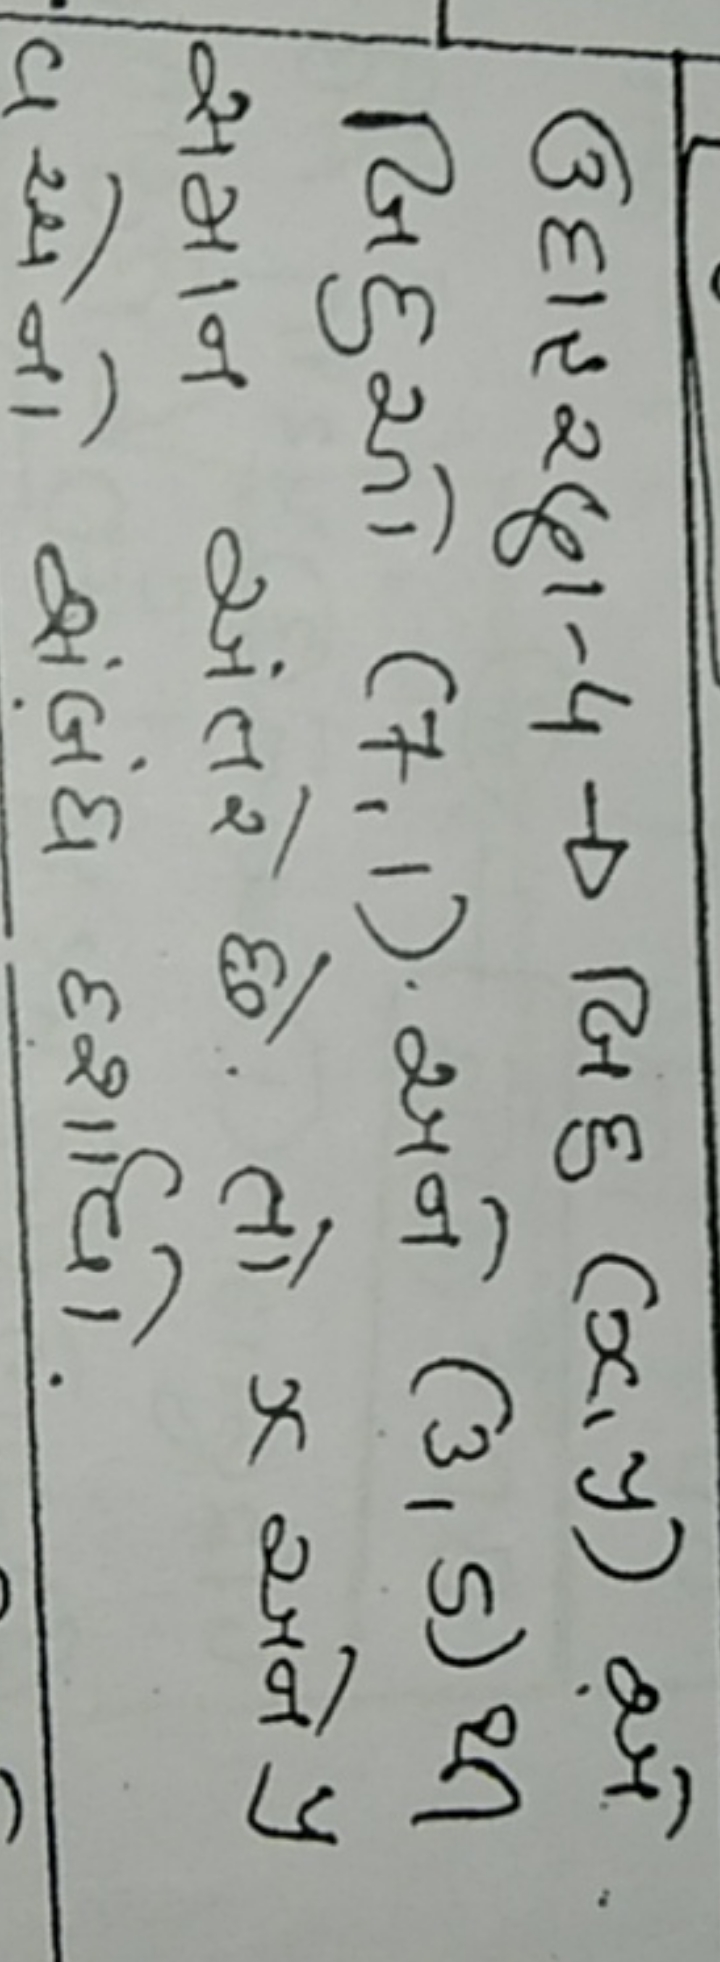 ઉદાહરણ-4 → બિંદુ (x, y) એ.
બિંદુઓ (7, 1). અને (3, 5) થી
સમાન અંતરે છે. તો x અને y
વચ્ચેનો સંબંધ દર્શાવો.